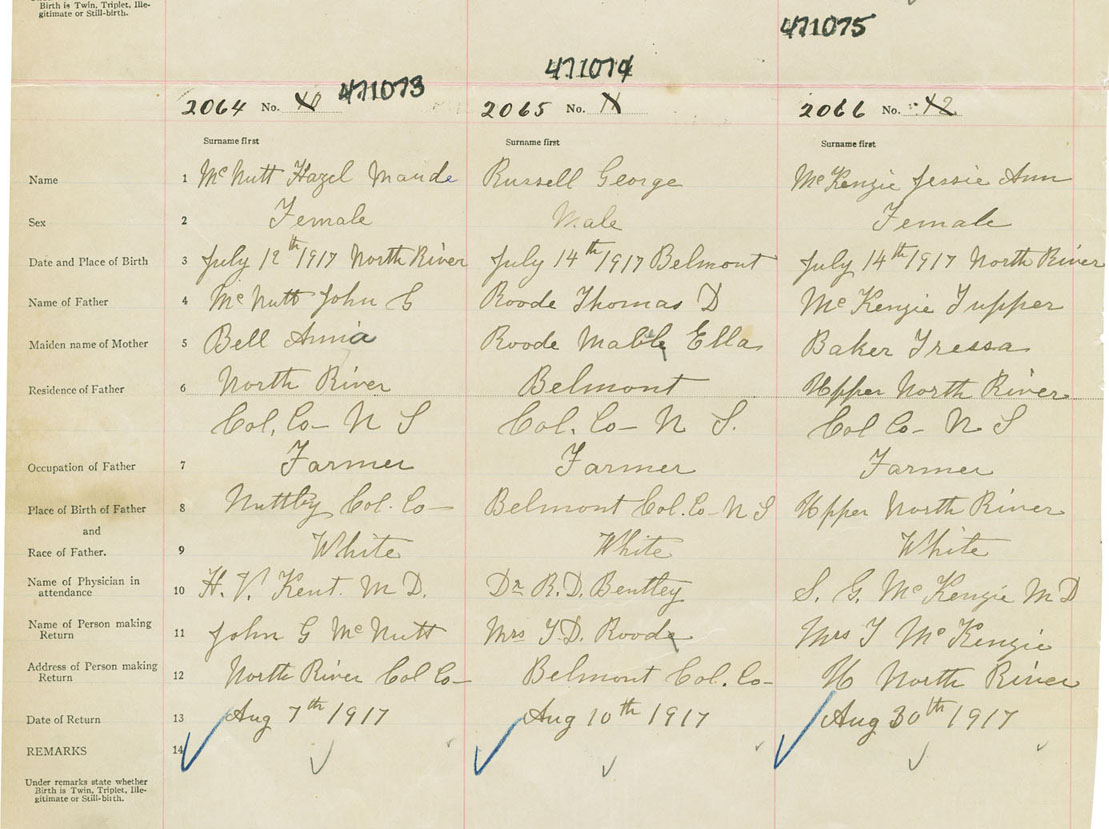 Birth is Twin, Triplet, Ille-
gitimate or Still-birth.
471075
471074
471073
2064 No. 10 2065 No. 11 2066 No. 12
Surname first Surname first Surname first
Name 1 McNutt Hazel Maude Russell George McKenzie Jessie Ann
Sex 2 Female Male Female
Date and Place of Birth 3 July 12th 1917 North River July 14th 1917 Belmont July 14th 1917 North River
Name of Father 4 McNutt John G Roode Thomas D McKenzie Tupper
Maiden name of Mother 5 Bell Annia Roode Mable Ella Baker Tressa
Residence of Father 6 North River Belmont Upper North River
Col. Co– N S Col. Co– N S. Col Co– N S
Occupation of Father 7 Farmer Farmer Farmer
Place of Birth of Father 8 Nuttby Col. Co– Belmont Col. Co– N S Upper North River
and
Race of Father. 9 White White White
Name of Physician in
attendance 10 H. V. Kent. M D. Dr R. D. Bentley S. G. McKenzie M D
Name of Person making
Return 11 John G McNutt Mrs T. D. Roode Mrs T McKenzie
Address of Person making
Return 12 North River Col Co– Belmont Col. Co– U North River
Date of Return 13 Aug 7th 1917 Aug 10th 1917 Aug 30th 1917
REMARKS 14
Under remarks state whether
Birth is Twin, Triplet, Ille-
gitimate or Still-birth.